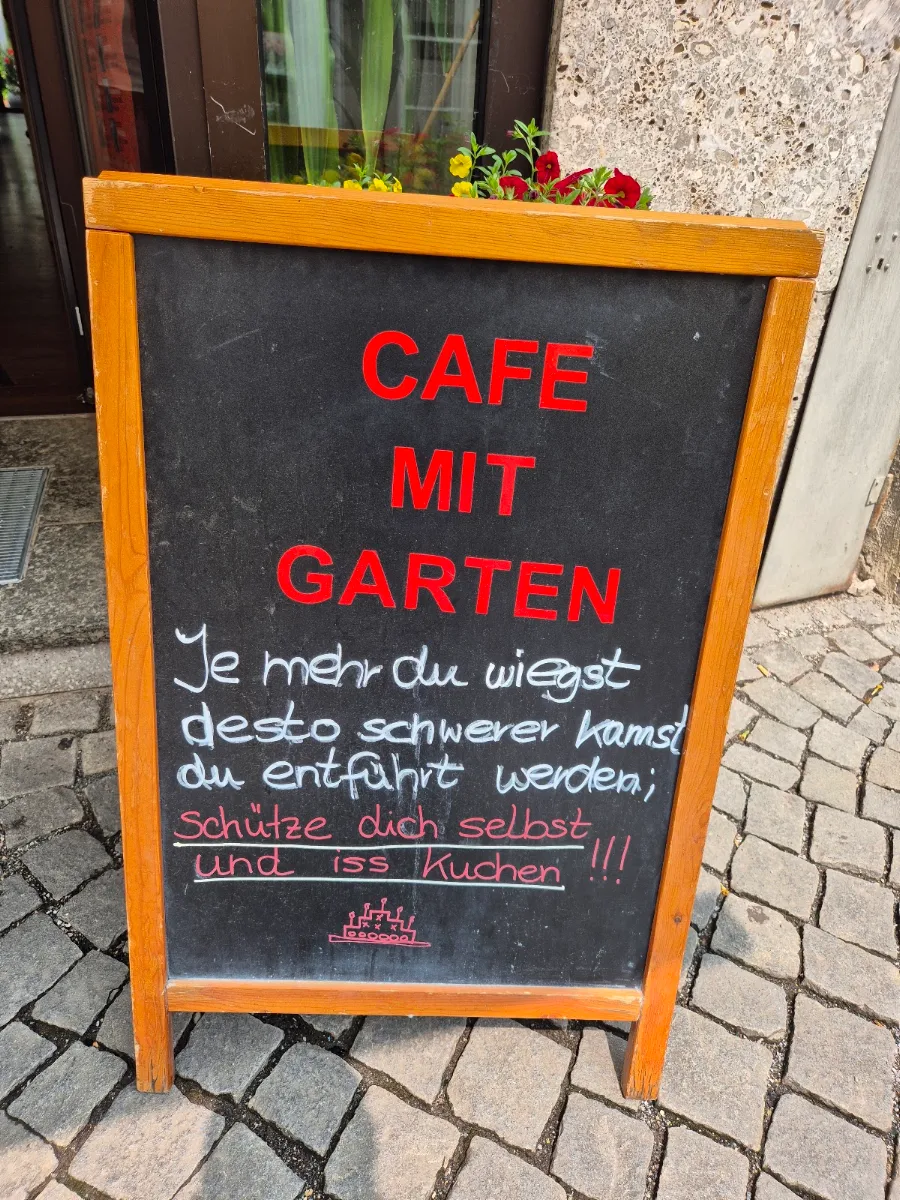 CAFE
MIT
GARTEN
Je mehr du wiegst
desto schwerer kamst
du entführt werden;
Schütze dich selbst
und iss Kuchen !!!